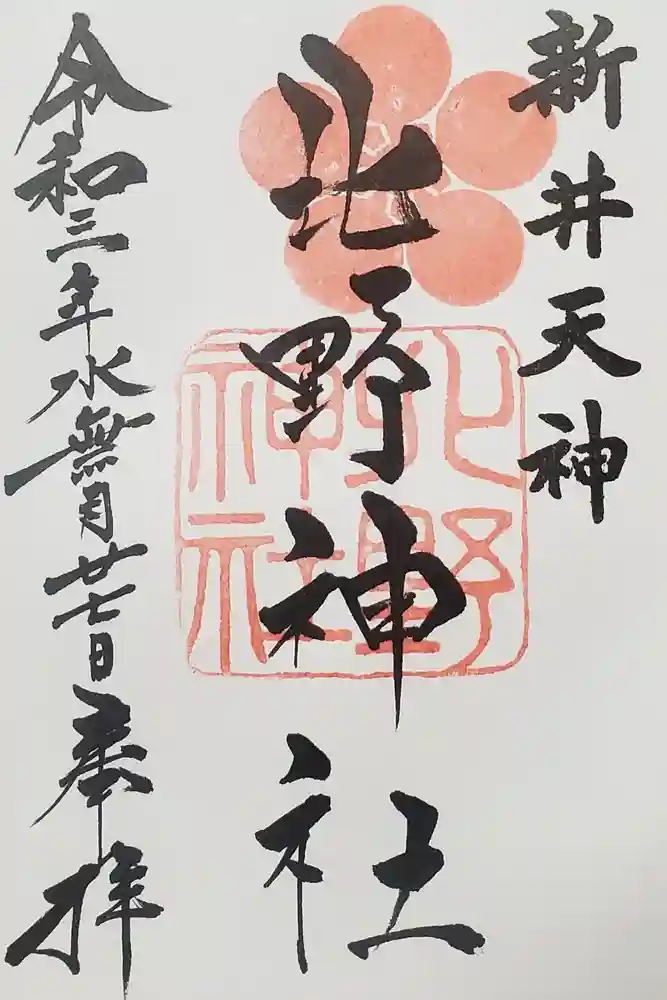 新井天神
北野神社
令和三年水無月廿七日奉拝
北野
神社